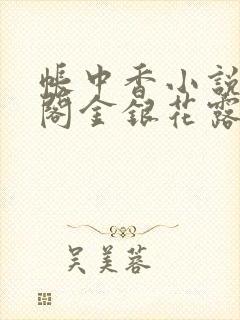 帳中香小說
閣金銀花露
吳美蓉